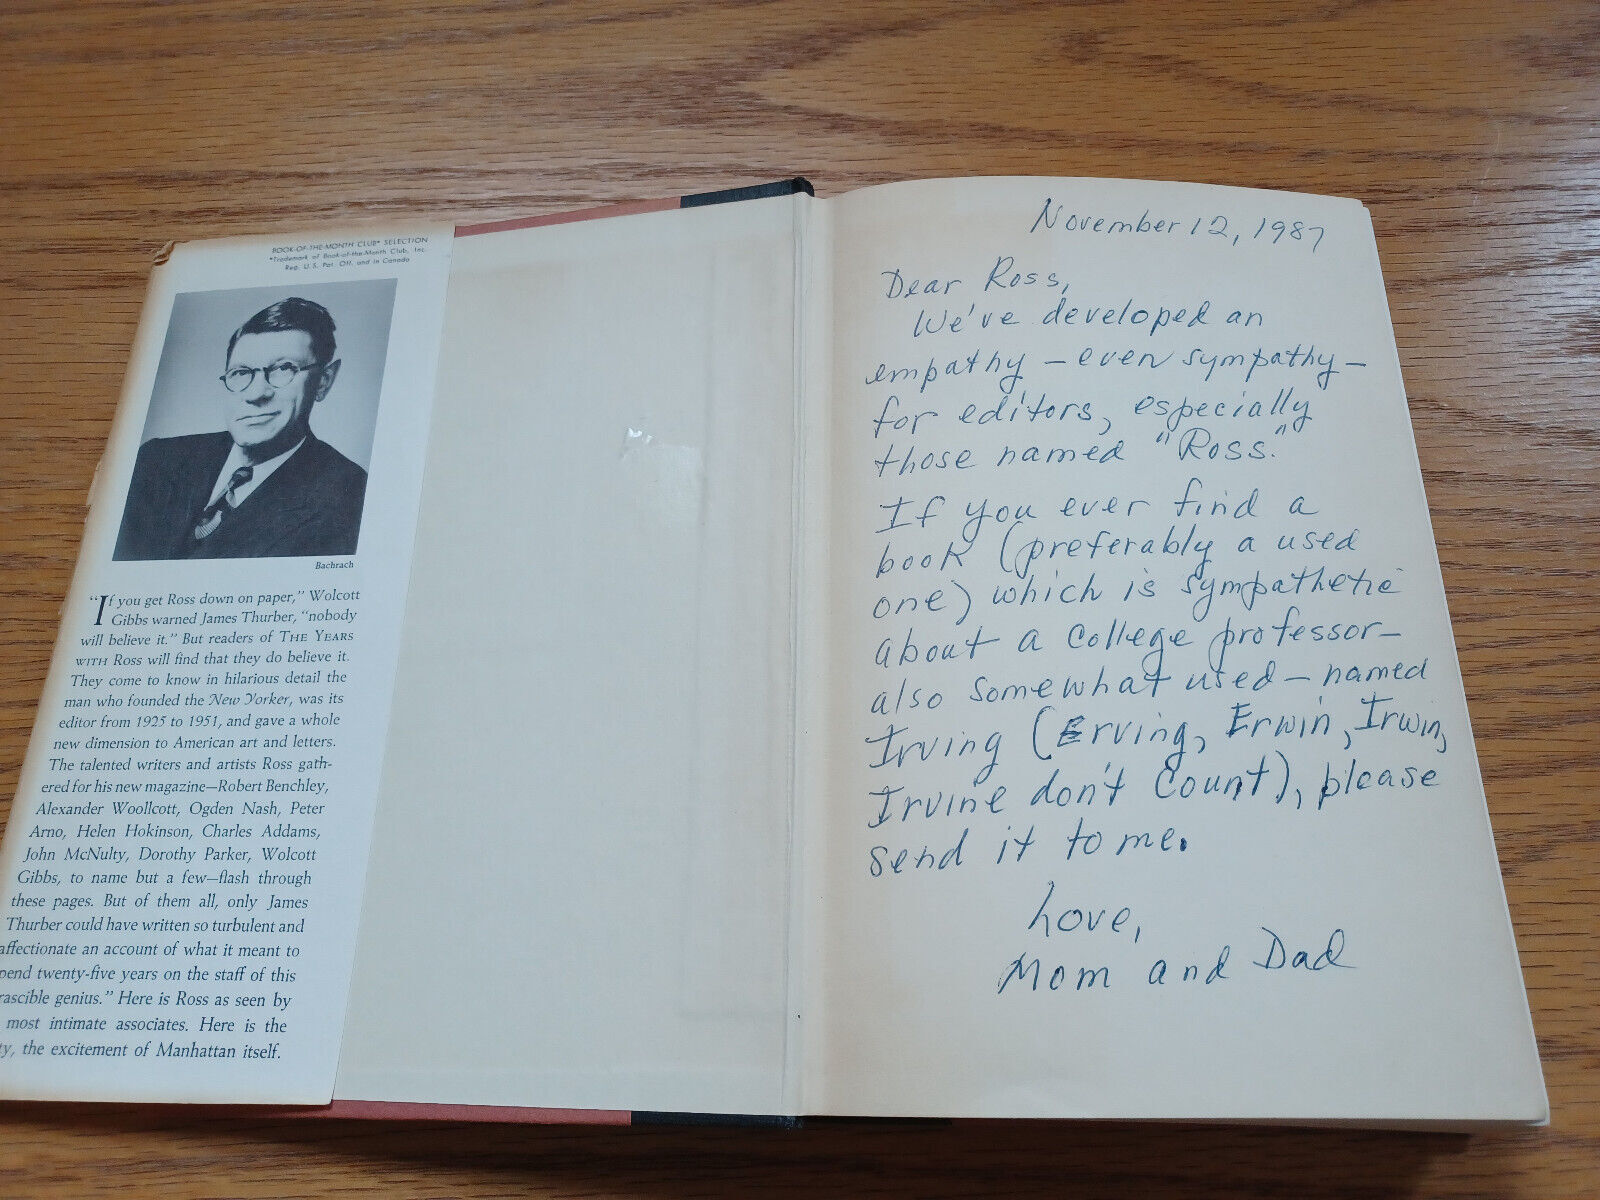 BOOK-OF-THE-MONTH CLUB* SELECTION
*Trademark of Book-of-the-Month Club, Inc.
Reg. U.S. Pat. Off. and in Canada
Bachrach
"If you get Ross down on paper," Wolcott
Gibbs warned James Thurber, "nobody
will believe it." But readers of THE YEARS
WITH ROSS will find that they do believe it.
They come to know in hilarious detail the
man who founded the New Yorker, was its
editor from 1925 to 1951, and gave a whole
new dimension to American art and letters.
The talented writers and artists Ross gath-
ered for his new magazine—Robert Benchley,
Alexander Woollcott, Ogden Nash, Peter
Arno, Helen Hokinson, Charles Addams,
John McNulty, Dorothy Parker, Wolcott
Gibbs, to name but a few—flash through
these pages. But of them all, only James
Thurber could have written so turbulent and
affectionate an account of what it meant to
pend twenty-five years on the staff of this
rascible genius." Here is Ross as seen by
most intimate associates. Here is the
ty, the excitement of Manhattan itself.
November 12, 1987
Dear Ross,
We've developed an
empathy – even sympathy –
for editors, especially
those named "Ross."
If you ever find a
book (preferably a used
one) which is sympathetic
about a college professor –
also somewhat used – named
Irving (Erving, Erwin, Irwin,
Irvine don't count), please
send it to me.
Love,
Mom and Dad